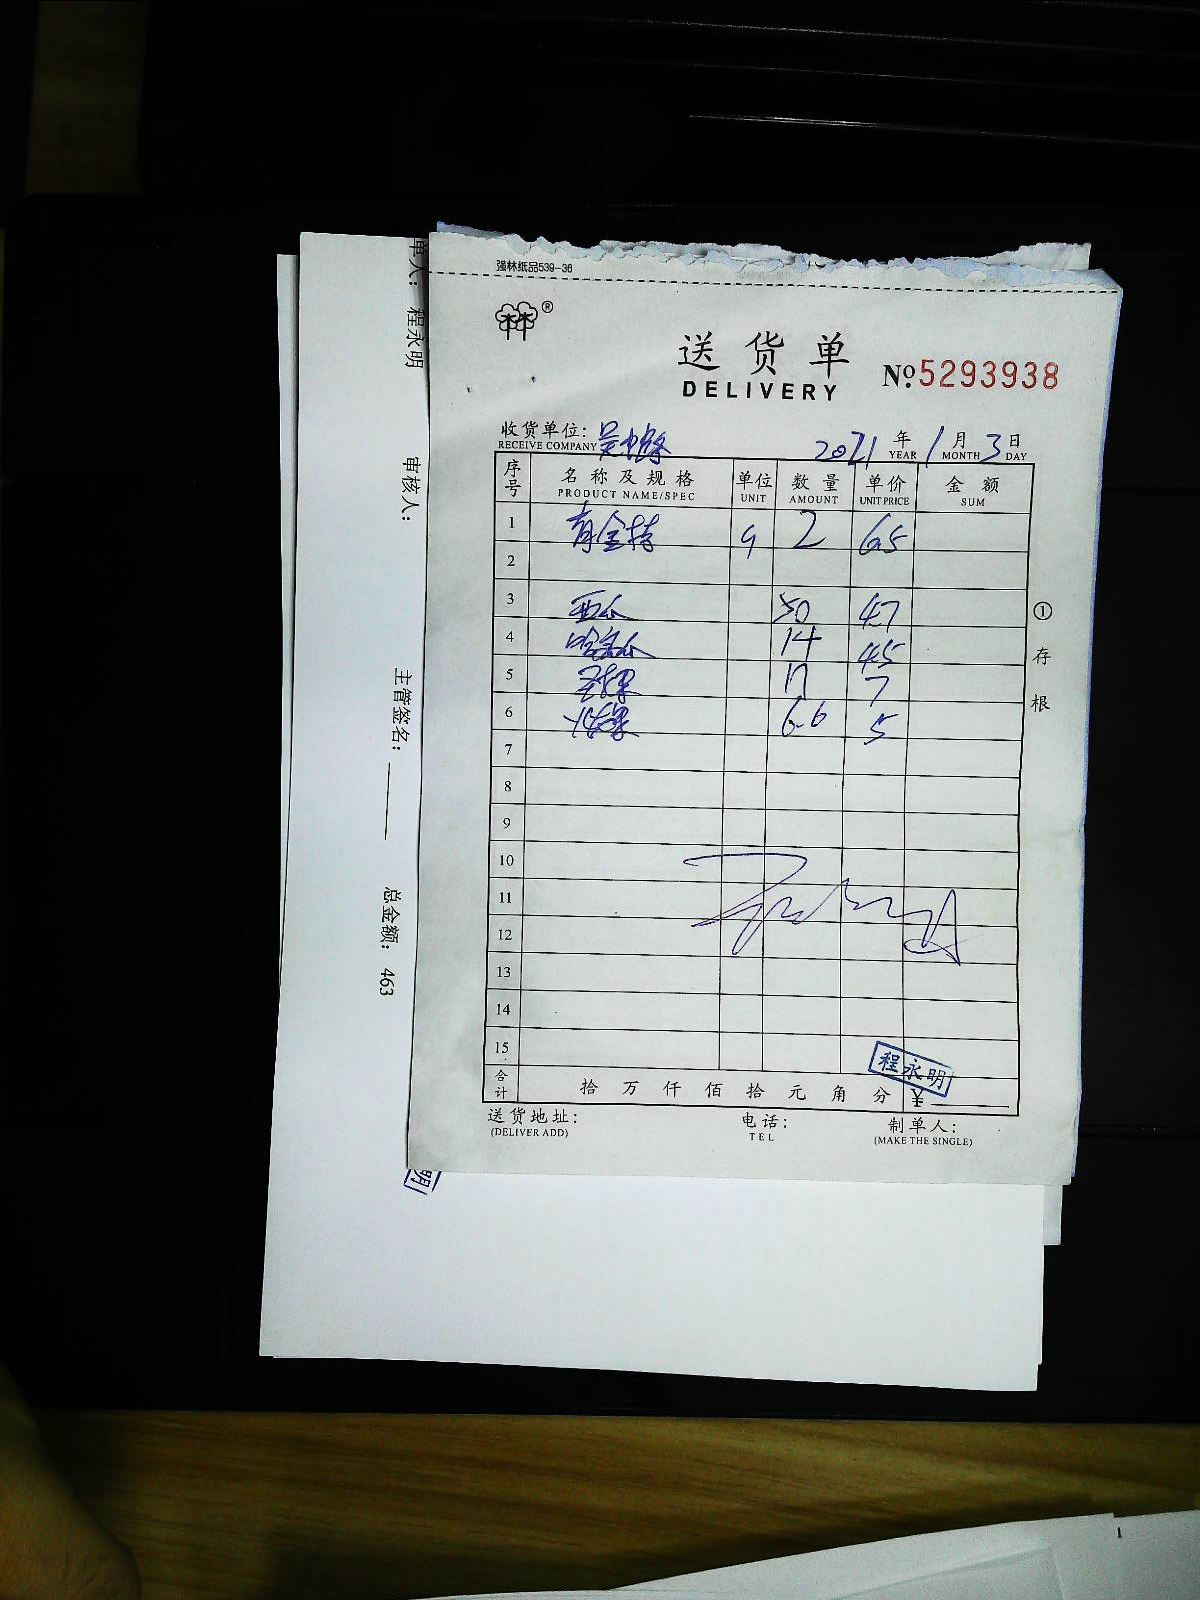 强林纸品539-36
林®
送货单
DELIVERY
№ 5293938
收货单位:
RECEIVE COMPANY
2021 年 YEAR 1 月 MONTH 3 日 DAY
序号 名称及规格 单位 数量 单价 金额
PRODUCT NAME/SPEC UNIT AMOUNT UNIT PRICE SUM
1 2 65
2
3 西瓜 50 4.7
4 哈密瓜 14 4.5
5 17 7
6 6.6 5
7
8
9
10
11
12
13
14
15
合计 拾 万 仟 佰 拾 元 角 分 ¥
程永明
送货地址: 电话: 制单人:
(DELIVER ADD) TEL (MAKE THE SINGLE)
① 存根
单人: 程永明 审核人: 主管签名: 总金额: 463
明